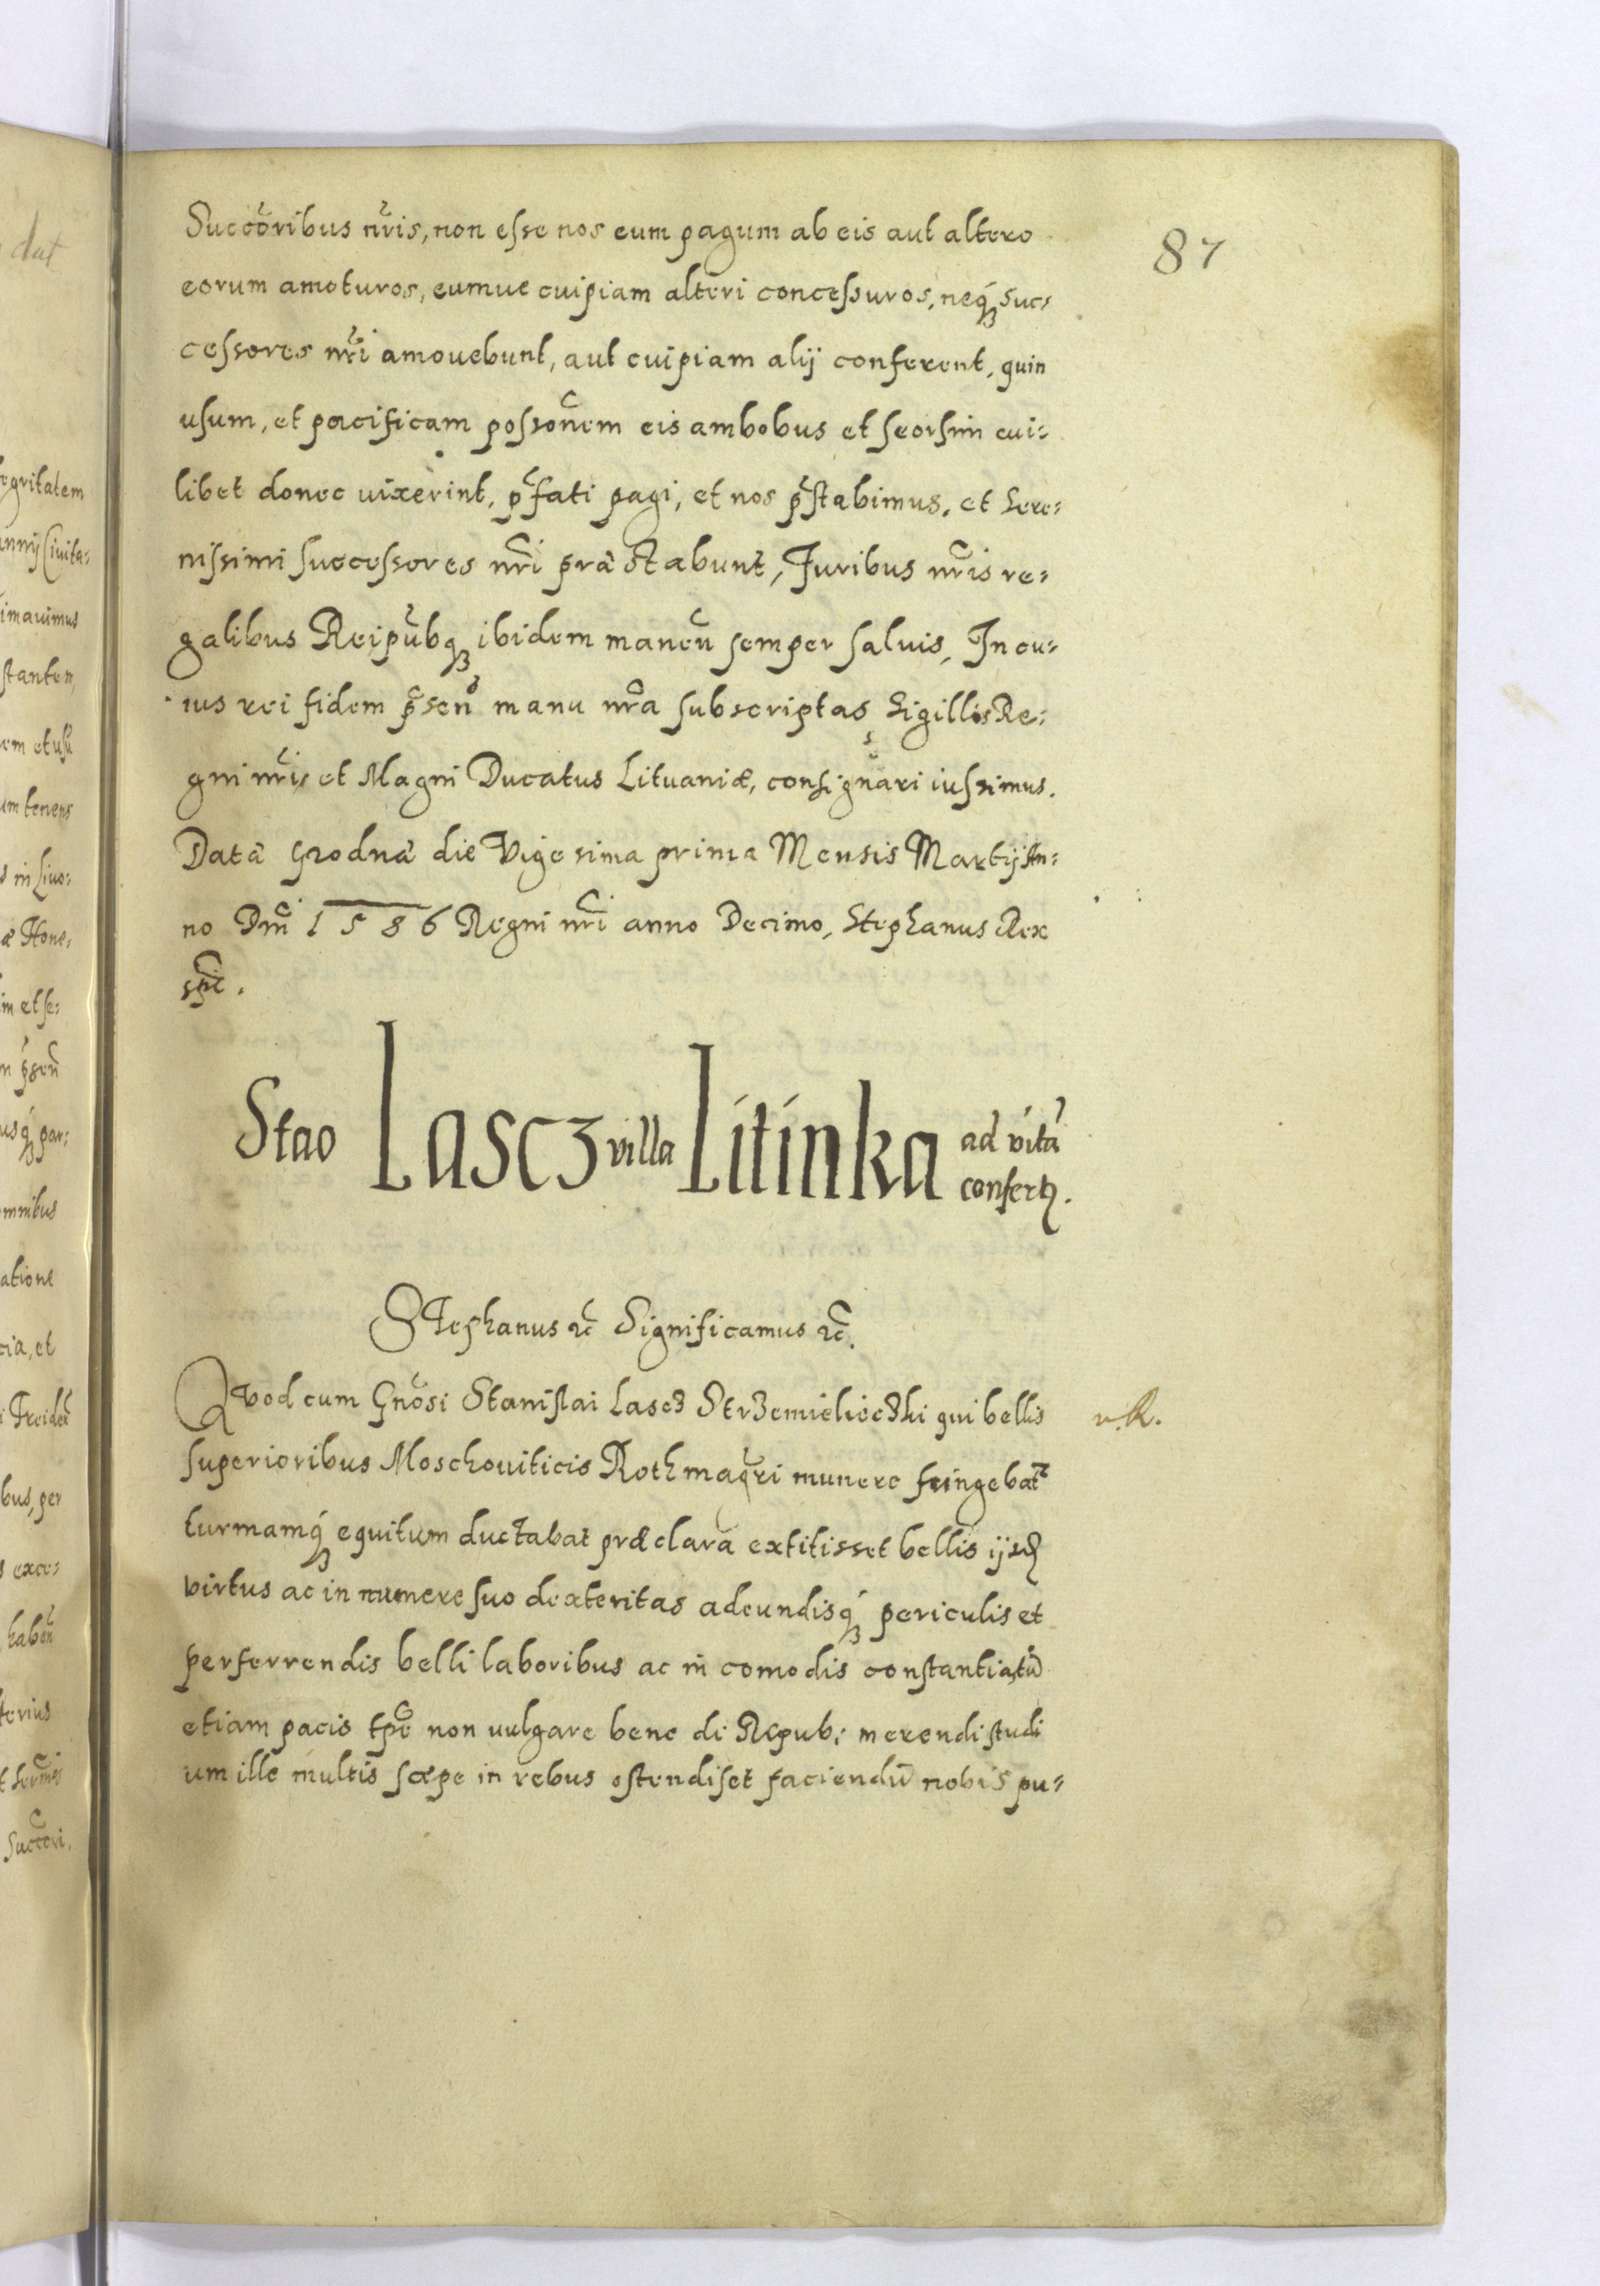 87
Succoribus nris, non esse nos eum pagum ab eis aut altero
eorum amoturos, eumue cuipiam alteri concessuros, neq́ꝫ suc⸗
cessores nri amouebunt, aut cuipiam alij conferent, quin
usum, et pacificam possonem eis ambobus et seorsim cui⸗
libet donec uixerint, pfati pagi, et nos pstabimus, et Sere⸗
nissimi successores nri præstabunt, Juribus nris re⸗
galibus Reipubqꝫ ibidem manen semper saluis, In cu⸗
ius rei fidem psen manu nra subscriptas Sigillis Re⸗
gni nri et Magni Ducatus Lituaniæ, consignari iussimus.
Datæ Grodnæ die Vigesima prima Mensis Martij An⸗
no Dni 1586 Regni nri anno Decimo, Stephanus Rex
sst.
Stao Lascz villa Litinka ad vitā
confertꝫ.
Stephanus ꝛc Significamus ꝛc.
Qvod cum Gnosi Stanislai Lascz Strzemieliczki qui bellis
v. R.
superioribus Moschouiticis Rothmagri munere fungebatr
turmamq́ꝫ equitum ductabat præclara extitisset bellis ijsd
virtus ac in munere suo dexteritas adeundisq́ꝫ periculis et
perferrendis belli laboribus ac in comodis constantia, tū
etiam pacis tpe non uulgare bene di Repub: merendi studi
um ille multis sæpe in rebus ostendiset faciendū nobis pu⸗